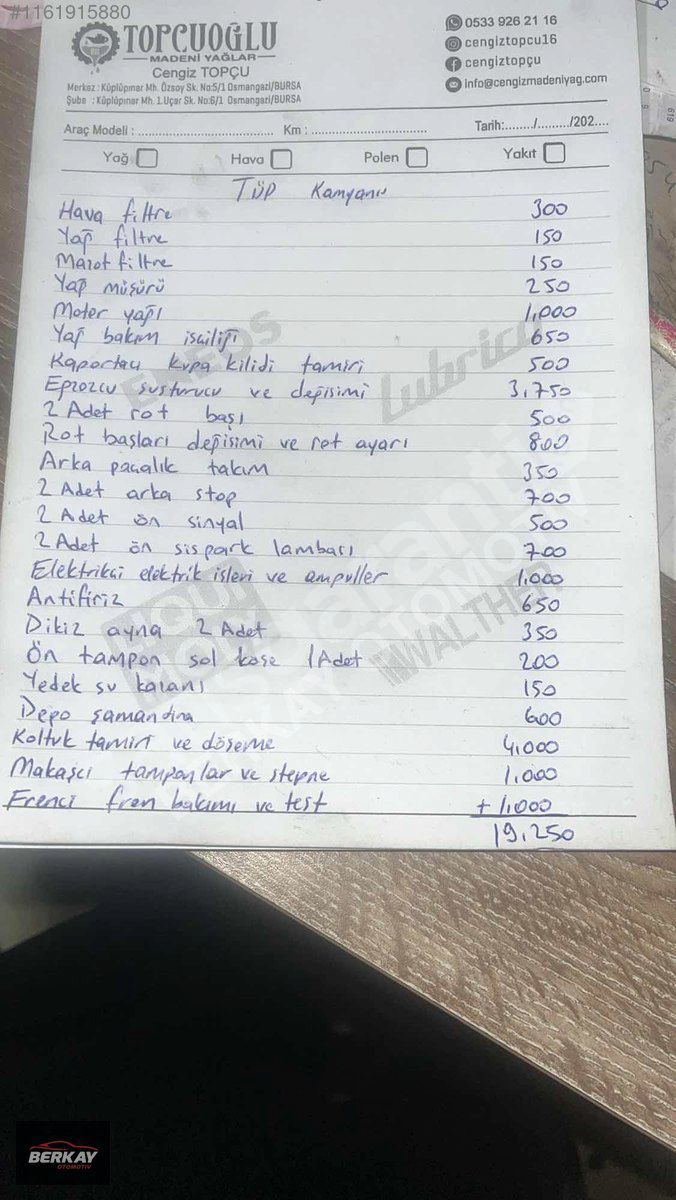 #1161915880
TOPCUOĞLU
MADENİ YAĞLAR
Cengiz TOPÇU
Merkez : Küplüpınar Mh. Özsoy Sk. No:5/1 Osmangazi/BURSA
Şube : Küplüpınar Mh. 1.Uçar Sk. No:6/1 Osmangazi/BURSA
0533 926 21 16
cengiztopcu16
cengiztopçu
info@cengizmadeniyag.com
Araç Modeli : Km : Tarih:......./........./202....
Yağ Hava Polen Yakıt
TÜP Kamyanı
Hava filtre 300
Yağ filtre 150
Mazot filtre 150
Yağ müşürü 250
Moter yağı 1,000
Yağ bakım isciliği 650
Kaportacı kupa kilidi tamiri 500
Egzozcu susturucu ve değisimi 3,750
2 Adet rot başı 500
Rot başları değisimi ve rot ayarı 800
Arka paçalık takım 350
2 Adet arka stop 700
2 Adet ön sinyal 500
2 Adet ön sispark lambası 700
Elektrikci elektrik isleri ve ampuller 1,000
Antifiriz 650
Dikiz ayna 2 Adet 350
Ön tampon sol köse 1 Adet 200
Yedek su kazanı 150
Depo şamandıra 600
Koltuk tamiri ve döseme 4,000
Makasçi tamponlar ve stepne 1,000
Frenci fren bakımı ve test + 1,000
19,250
ENEOS
Lubrico
WALTHER
BERKAY OTOMOTİV
BERKAY
OTOMOTİV